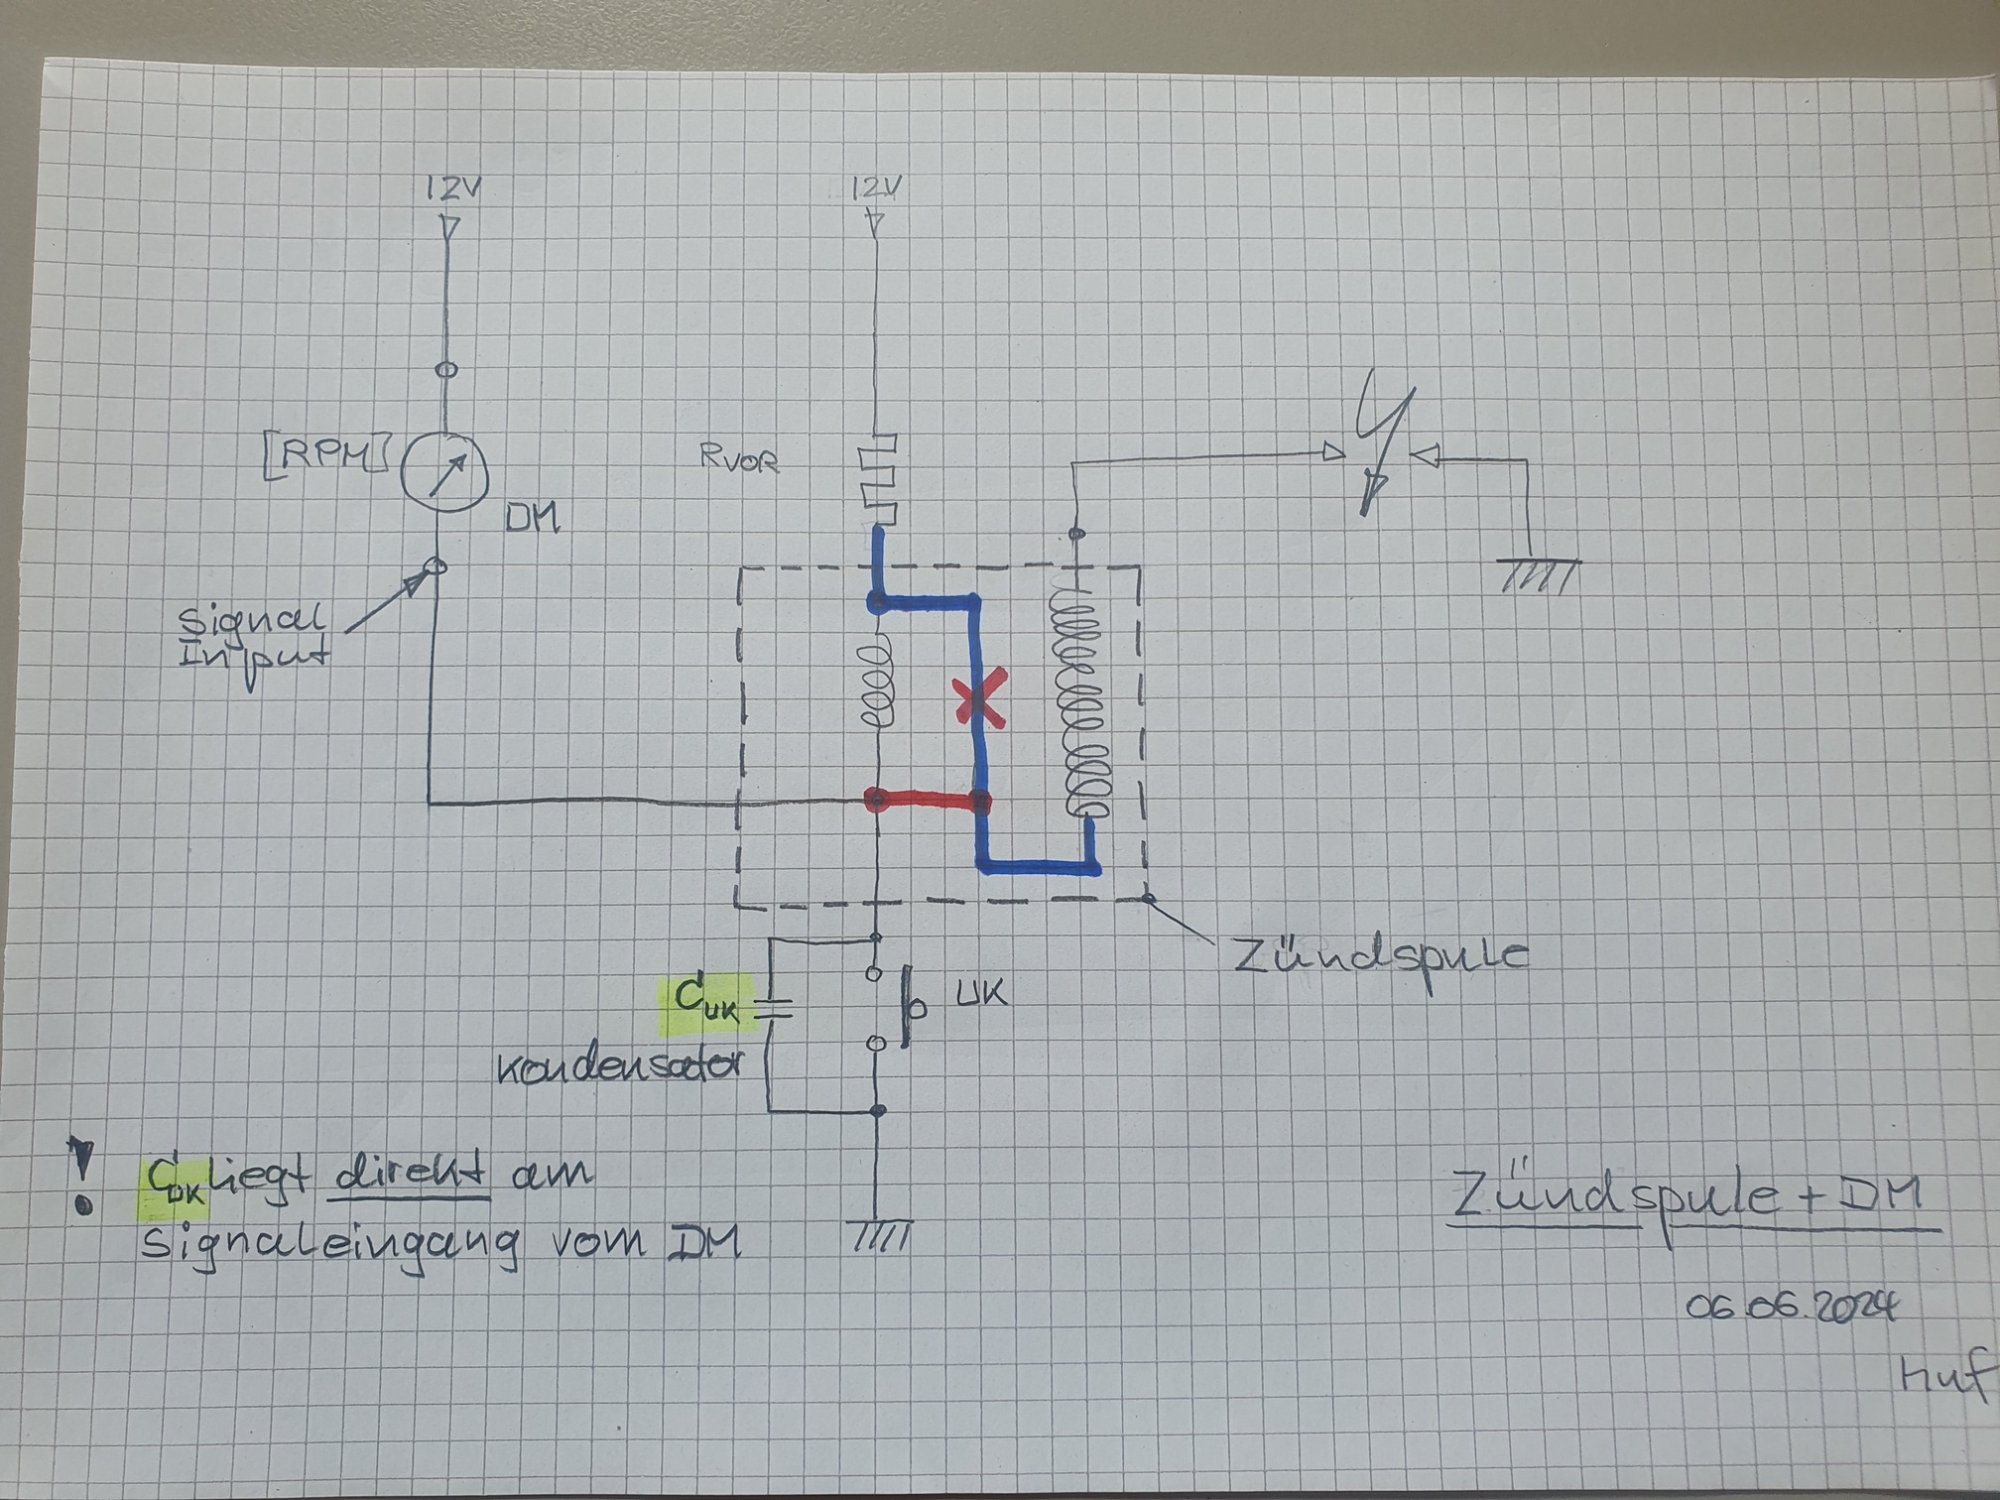 12V
12V
[RPM]
DM
RVOR
Signal
Input
Zündspule
CUK
UK
Kondensator
! CUK liegt direkt am
Signaleingang vom DM
Zündspule + DM
06.06.2024
Huf